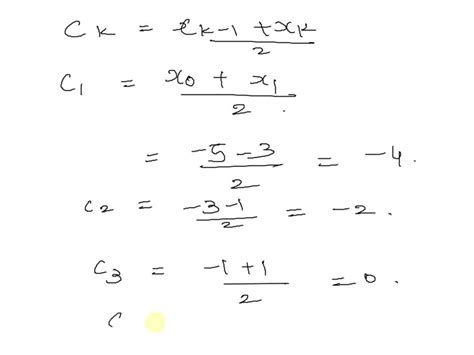 Ck = (xk-1 + xk)/2
C1 = (x0 + x1)/2.
= (-5-3)/2 = -4.
C2 = (-3-1)/2 = -2.
C3 = (-1+1)/2 = 0.
C